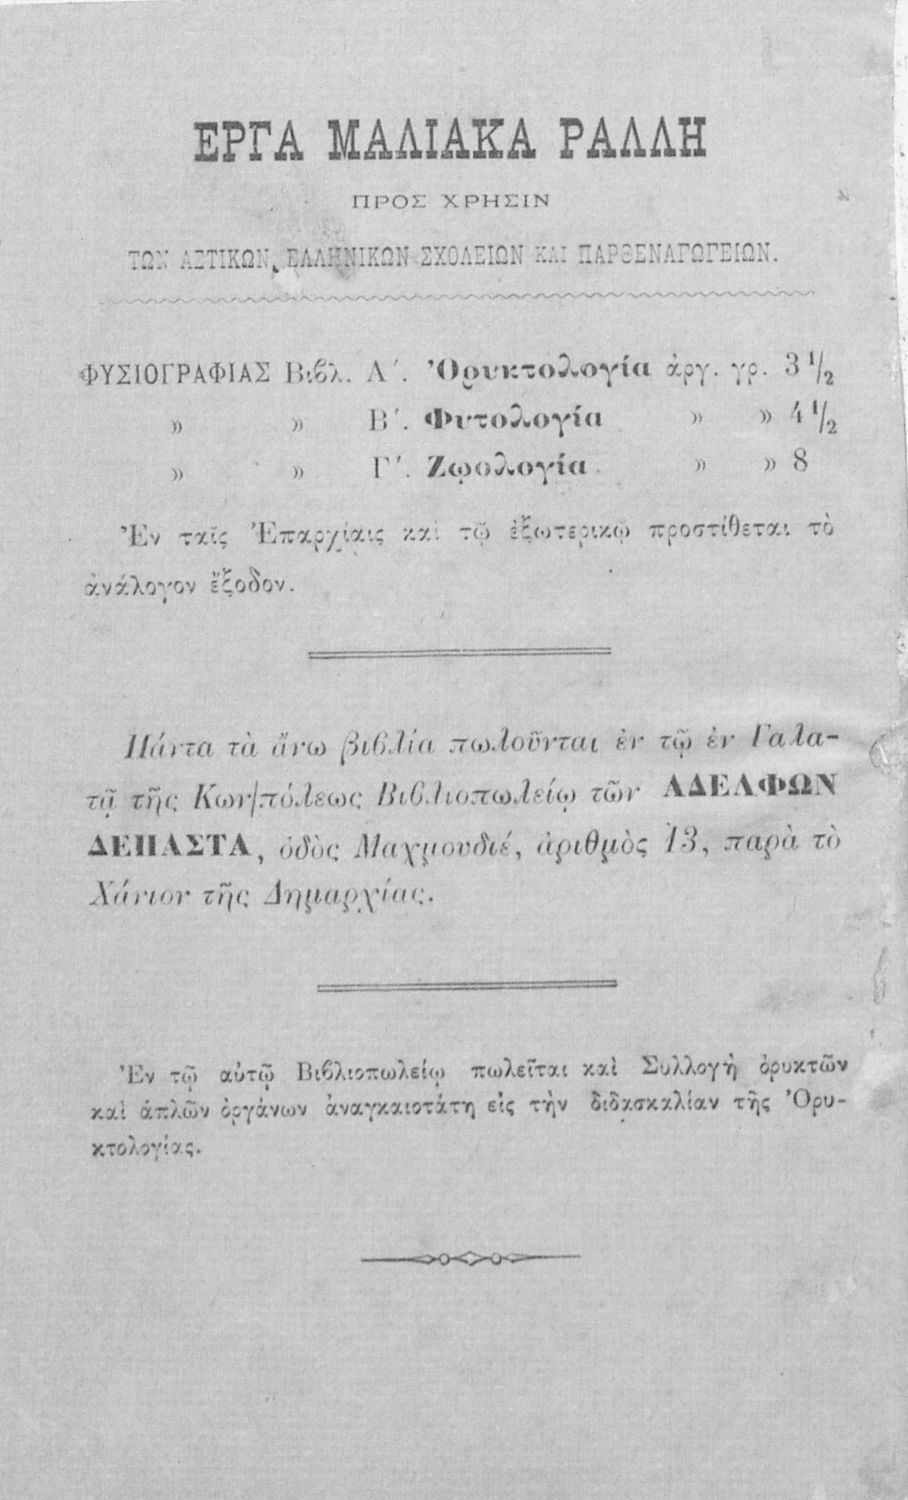 ΕΡΓΑ ΜΑΛΙΑΚΑ ΡΑΛΛΗ
ΠΡΟΣ ΧΡΗΣΙΝ
ΤΩΝ ΑΣΤΙΚΩΝ, ΕΛΛΗΝΙΚΩΝ ΣΧΟΛΕΙΩΝ ΚΑΙ ΠΑΡΘΕΝΑΓΩΓΕΙΩΝ.
ΦΥΣΙΟΓΡΑΦΙΑΣ Βιβλ. Α΄. Ὀρυκτολογία ἀργ. γρ. 3 1/2
» » Β΄. Φυτολογία » » 4 1/2
» » Γ΄. Ζῳολογία » » 8
Ἐν ταῖς Ἐπαρχίαις καὶ τῷ ἐξωτερικῷ προστίθεται τὸ
ἀνάλογον ἔξοδον.
Πάντα τὰ ἄνω βιβλία πωλοῦνται ἐν τῷ ἐν Γαλα-
τᾷ τῆς Κων|πόλεως Βιβλιοπωλείῳ τῶν ΑΔΕΛΦΩΝ
ΔΕΠΑΣΤΑ, ὁδὸς Μαχμουδιέ, ἀριθμὸς 13, παρὰ τὸ
Χάνιον τῆς Δημαρχίας.
Ἐν τῷ αὐτῷ Βιβλιοπωλείῳ πωλεῖται καὶ Συλλογὴ ὀρυκτῶν
καὶ ἁπλῶν ὀργάνων ἀναγκαιοτάτη εἰς τὴν διδασκαλίαν τῆς Ὀρυ-
κτολογίας.